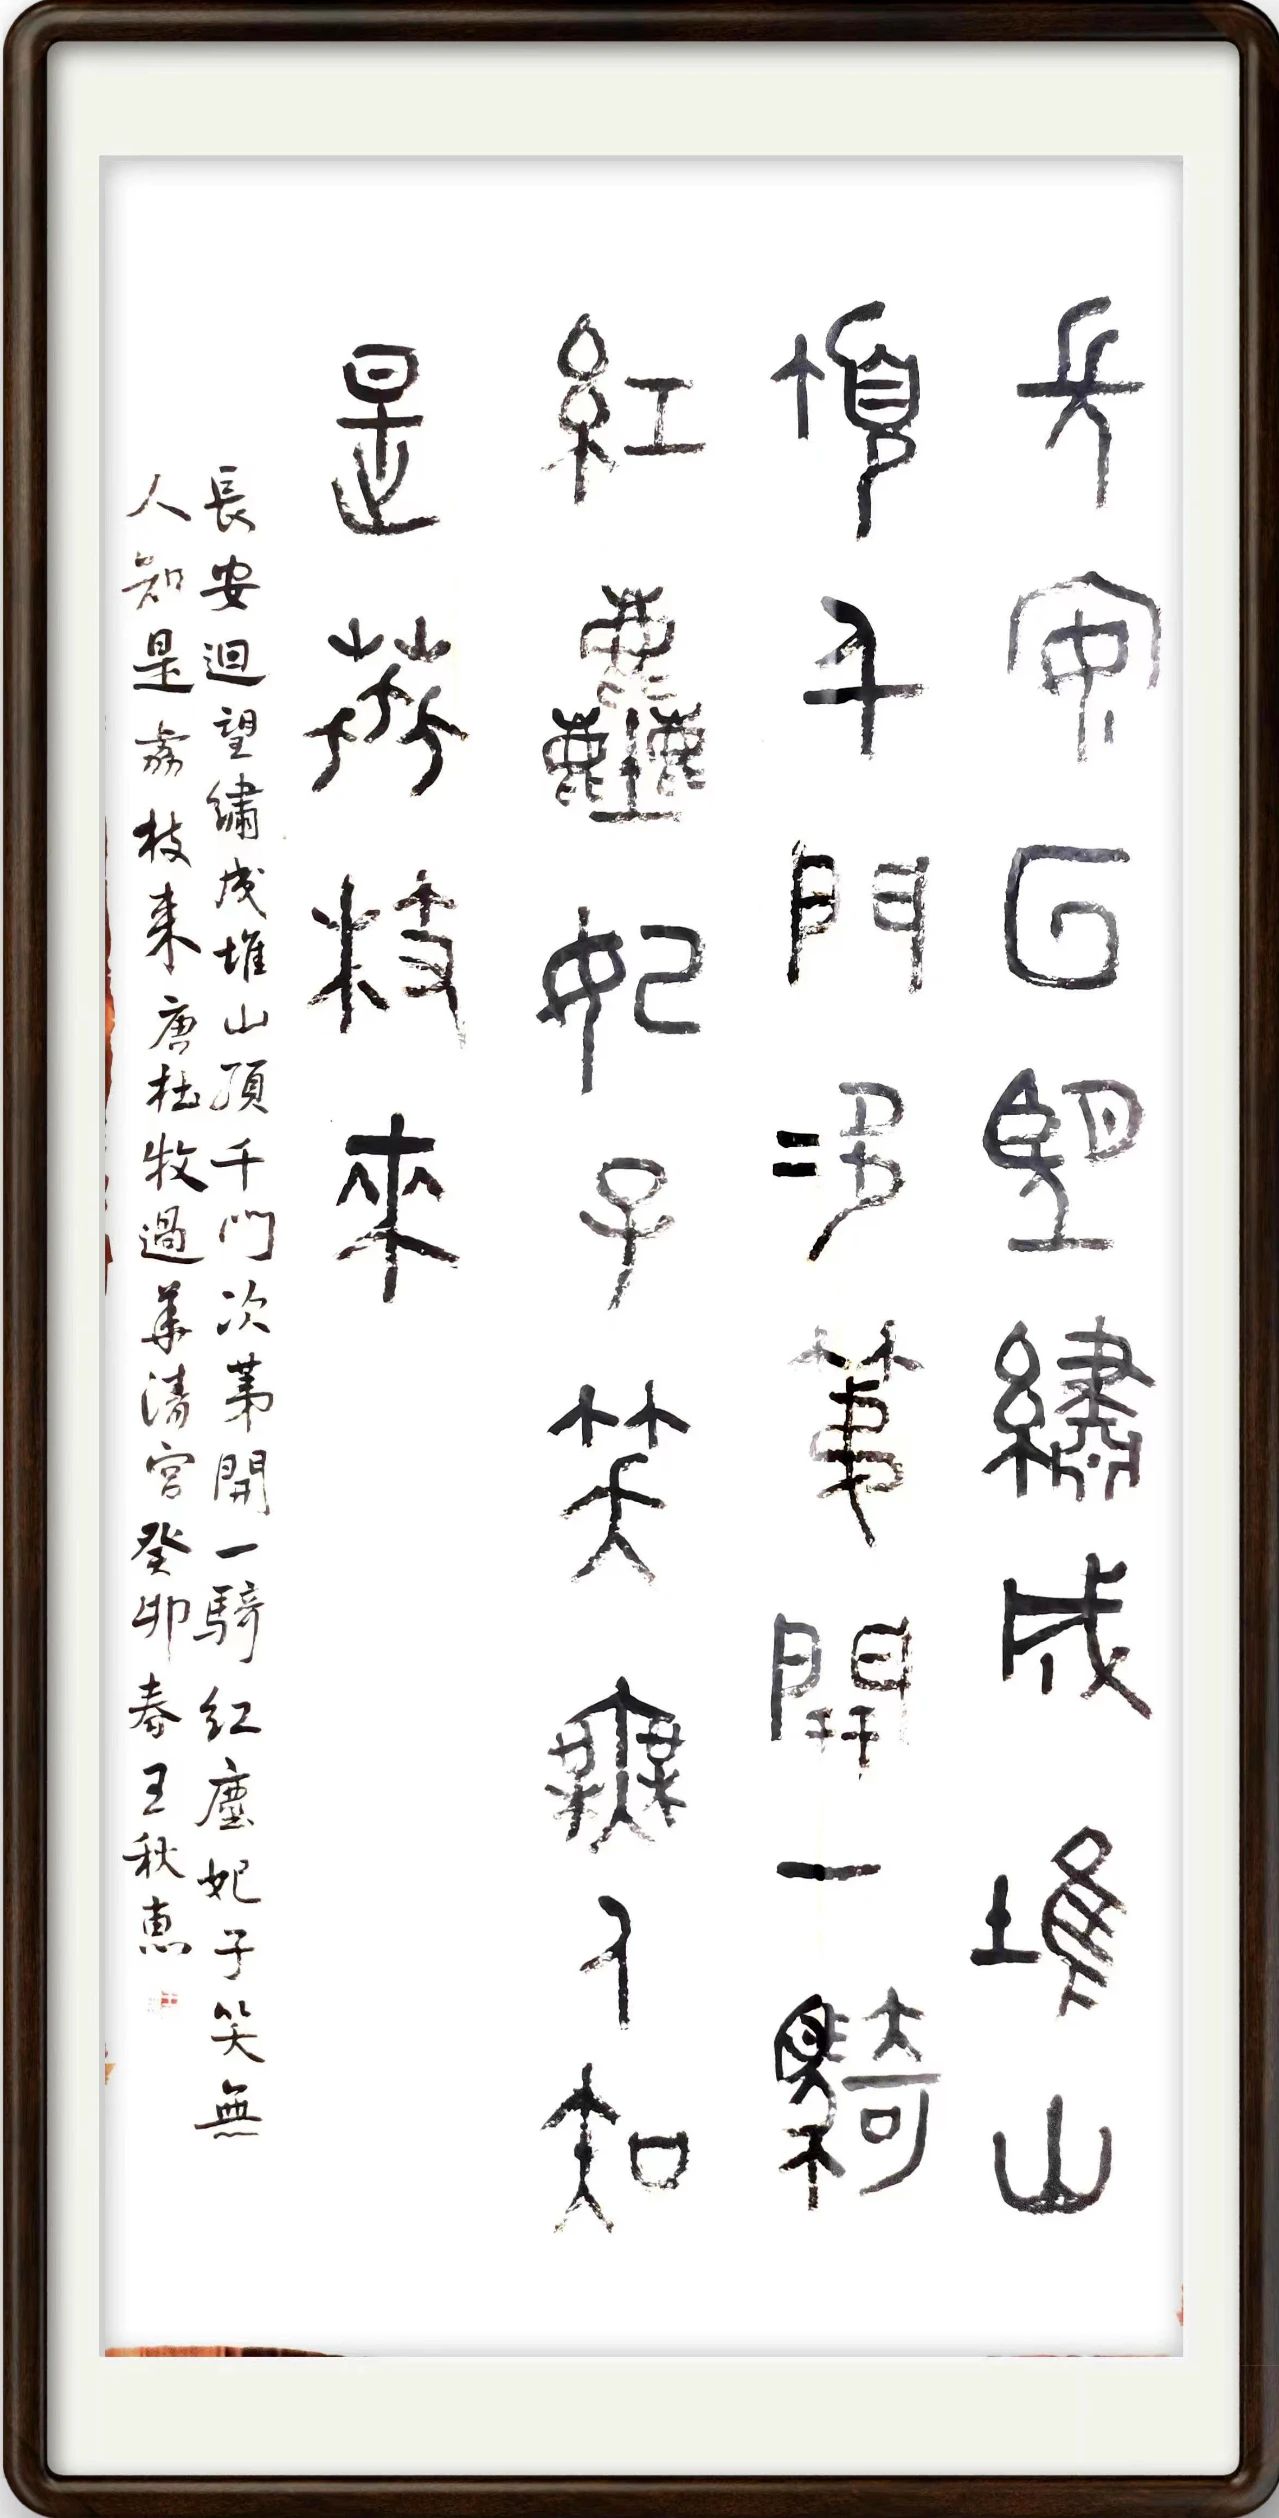 長安回望繡成堆山
頂千門次第開一騎
紅塵妃子笑無人知
是荔枝來
長安迴望繡成堆山頂千門次第開一騎紅塵妃子笑無
人知是荔枝来唐杜牧過華清宮癸卯春王秋惠